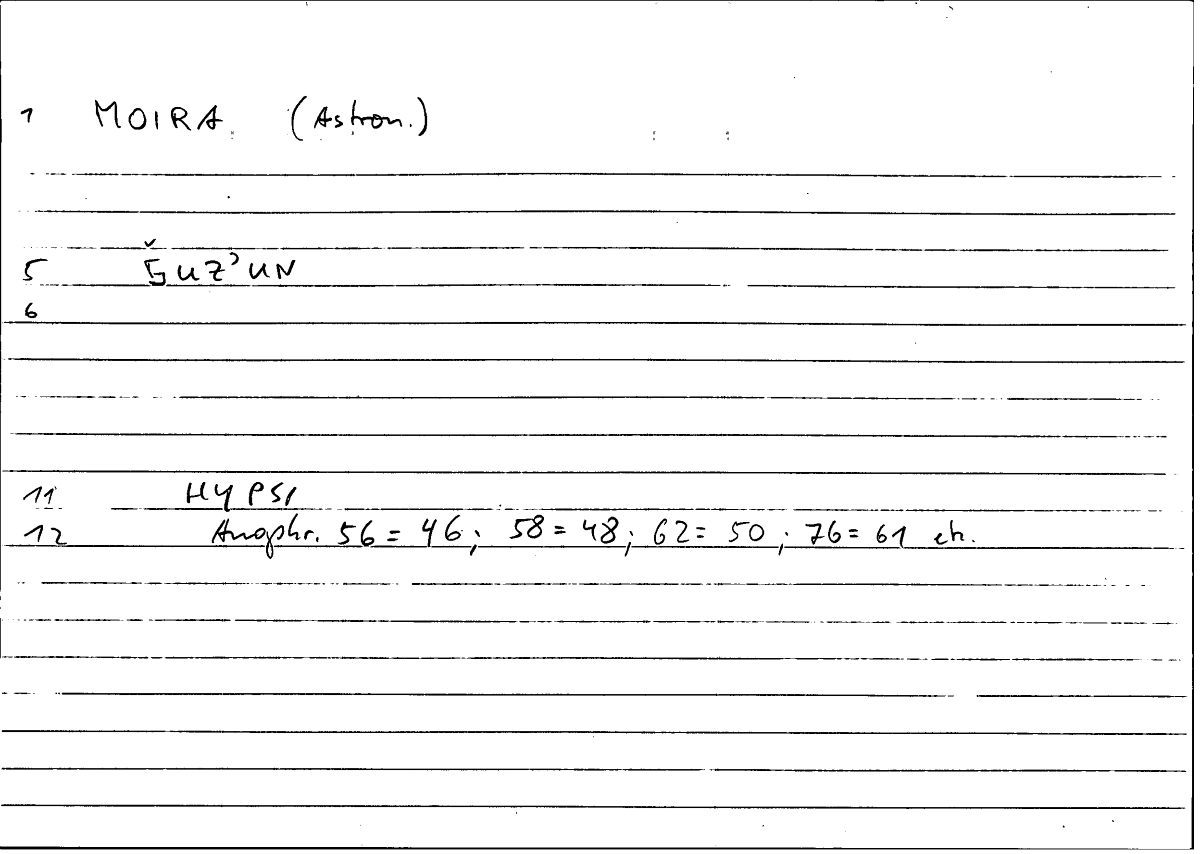 1 MOIRA (Astron.)
5 ǦUZʾUN
6
11 HYPSI
12 Anaphr. 56 = 46; 58 = 48; 62 = 50; 76 = 61 etc.